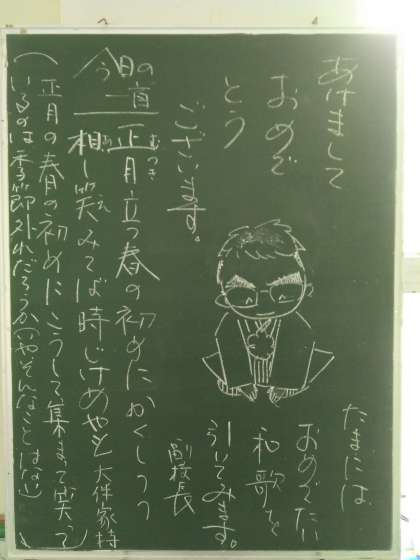 あけまして
おめで
とう
ございます。
たまには
おめでたい
和歌を
引いてみます。
副校長
今日の
一首
正月立つ春の初めにかくしつつ
むつき
相し笑みてば時じけめやも 大伴家持
あ
え
(正月の春の初めにこうして集まって笑って
いるのは季節外れだろうか(いやそんなことはない)